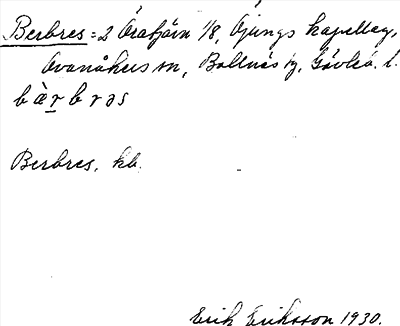 Berbres = 2 Öratjärn 1/8, Öjungs kapellag,
Ovanåkers sn, Bollnäs tg, Gävleb. l.
bàrbrəs
Berbres, kb.
Erik Eriksson 1930.